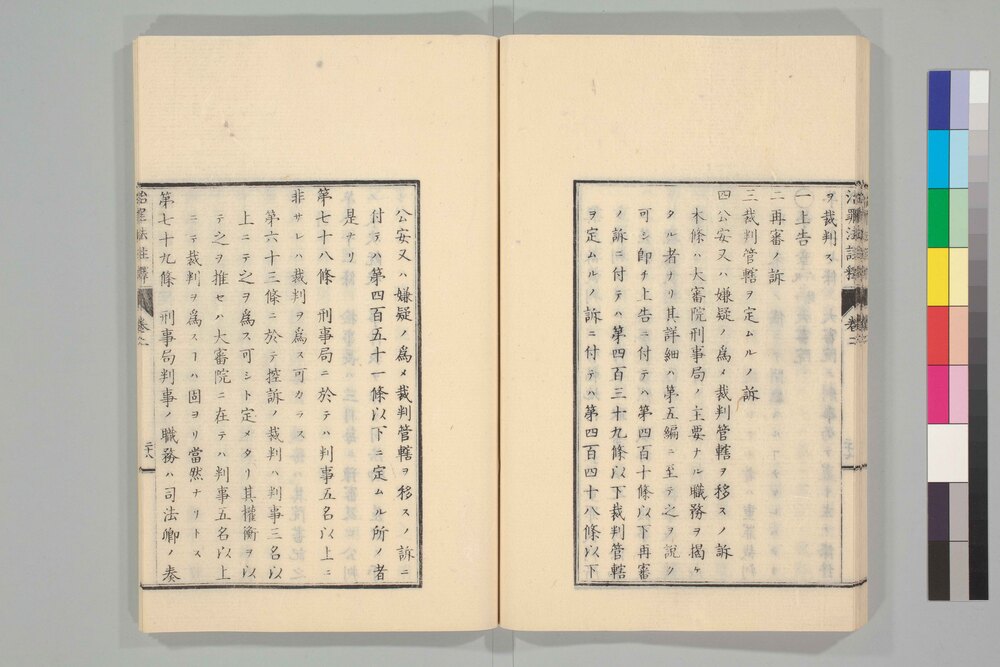 治罪法註釋 卷二
ヲ裁判ス
一 上告
二 再審ノ訴
三 裁判管轄ヲ定ムルノ訴
四 公安又ハ嫌疑ノ爲メ裁判管轄ヲ移スノ訴
本條ハ大審院刑事局ノ主要ナル職務ヲ揭ケ
タル者ナリ其詳細ハ第五編ニ至テ之ヲ說ク
可シ即チ上告ニ付テハ第四百十條以下再審
ノ訴ニ付テハ第四百三十九條以下裁判管轄
ヲ定ムルノ訴ニ付テハ第四百四十八條以下
公安又ハ嫌疑ノ爲メ裁判管轄ヲ移スノ訴ニ
付テハ第四百五十一條以下ニ定ムル所ノ者
是ナリ
第七十八條 刑事局ニ於テハ判事五名以上ニ
非サレハ裁判ヲ爲ス可カラス
第六十三條ニ於テ控訴ノ裁判ハ判事三名以
上ニテ之ヲ爲ス可シト定メタリ其權衡ヲ以
テ之ヲ推セハ大審院ニ在テハ判事五名以上
ニテ裁判ヲ爲スヿハ固ヨリ當然ナリトス
第七十九條 刑事局判事ノ職務ハ司法卿ノ奏
治罪法註釋 卷之二